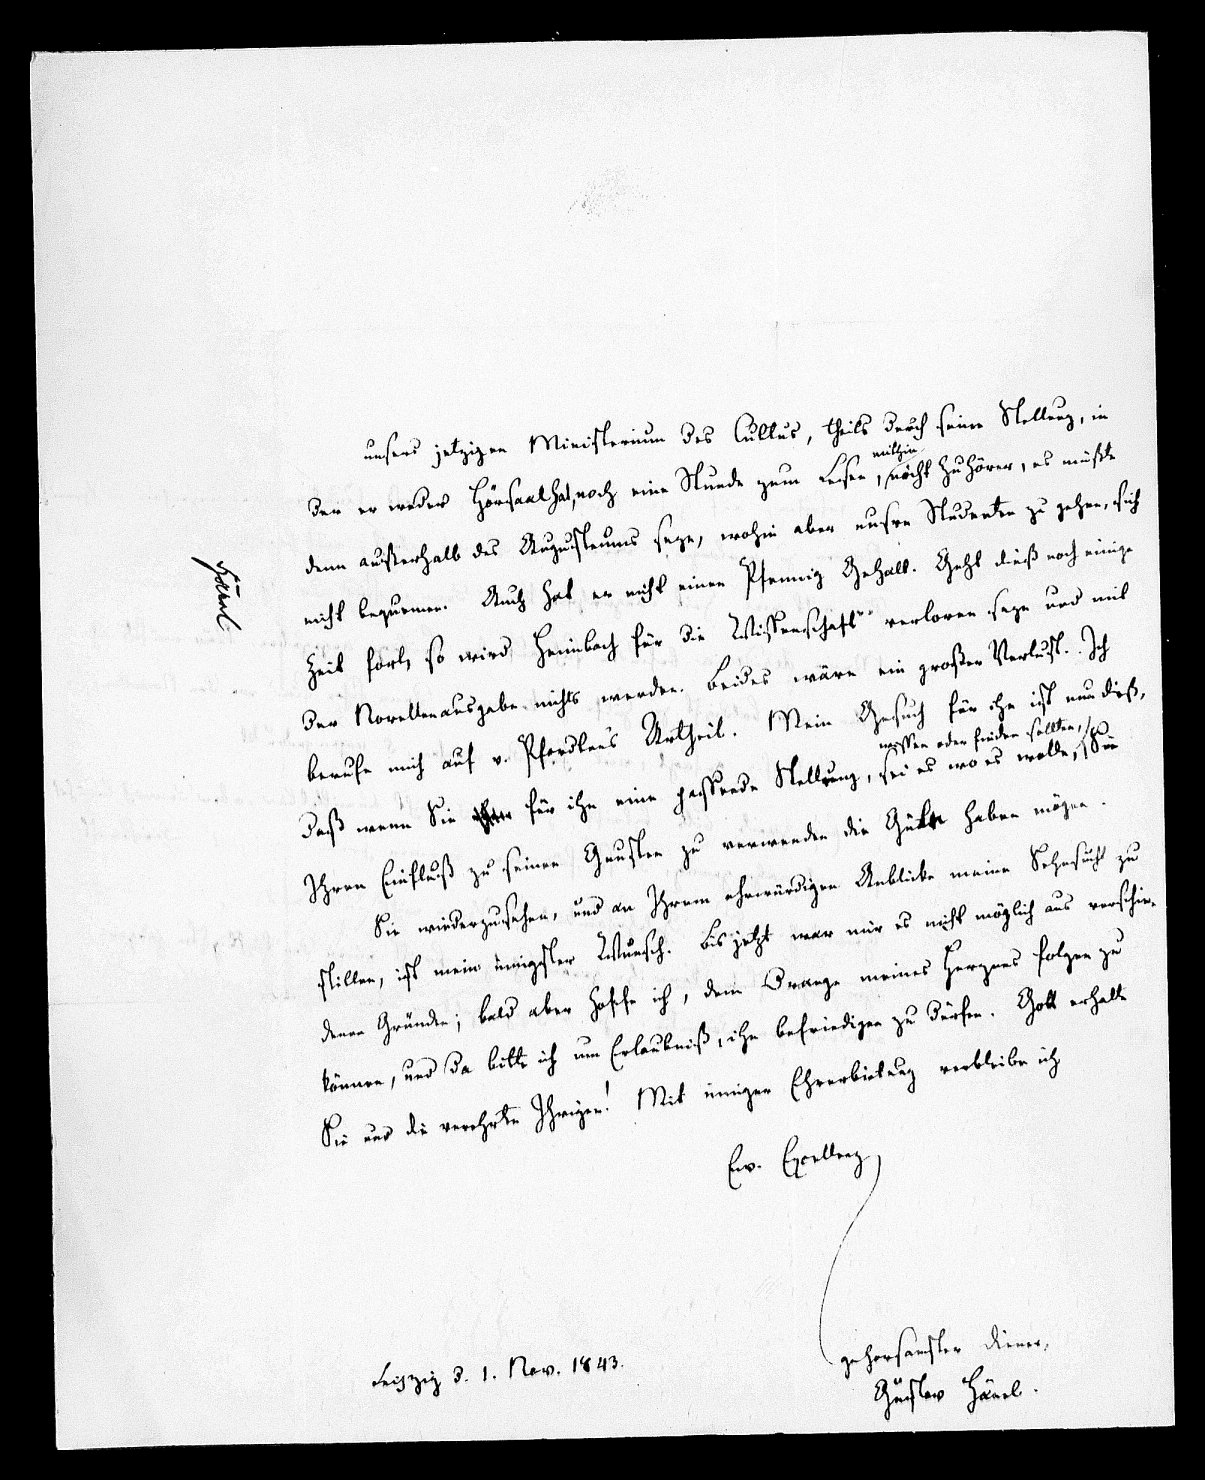 unsers jetzigen Ministerium des Cultus, theils durch seine Stellung, in
der er weder Hörsaal hat, noch eine Stunde zum Lesen, mithin nicht Zuhörer, es müßte
denn außerhalb des Augusteums seyn, wohin aber unsre Studenten zu gehen, sich
nicht bequemen. Auch hat er nicht einen Pfennig Gehalt. Geht dieß noch einige
Zeit fort, so wird Heimbach für die Wissenschaft verloren seyn und mit
der Novellenausgabe nichts werden. Beides wäre ein großer Verlust. Ich
berufe mich auf v. Pfordten's Urtheil. Mein Gesuch für ihn ist nun dieß,
daß wenn Sie für ihn eine passende Stellung, sei es wo es wolle, wissen oder finden sollten, Sie
Ihren Einfluß zu seinen Gunsten zu verwenden die Güte haben mögen.
Sie wiederzusehen, und an Ihrem ehrwürdigen Anblicke meine Sehnsucht zu
stillen, ist mein innigster Wunsch. Bis jetzt war mir es nicht möglich aus verschie-
denen Gründen; bald aber hoffe ich, dem Drange meines Herzens folgen zu
können, und da bitte ich um Erlaubniß, ihn befriedigen zu dürfen. Gott erhalte
Sie und die verehrten Ihrigen! Mit inniger Ehrerbietung verbleibe ich
Ew. Excellenz
gehorsamster Diener,
Gustav Hänel.
Leipzig d. 1. Nov. 1843.
Hänel